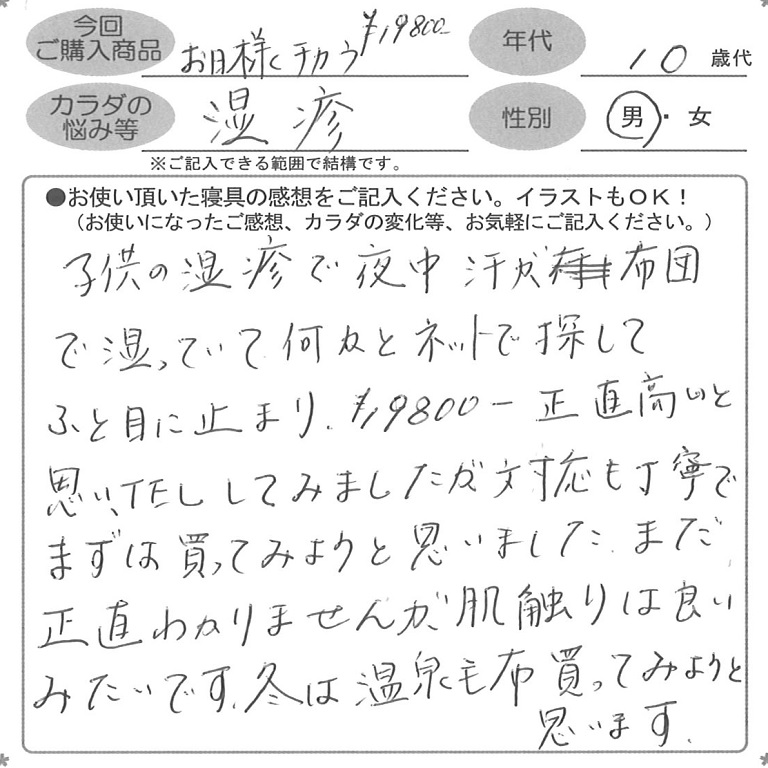 今回
ご購入商品
お日様くチカラ ¥19800-
年代
10 歳代
カラダの
悩み等
湿疹
性別
男・女
※ご記入できる範囲で結構です。
●お使い頂いた寝具の感想をご記入ください。イラストもOK!
(お使いになったご感想、カラダの変化等、お気軽にご記入ください。)
子供の湿疹で夜中汗が布団
で湿っていて何かとネットで探して
ふと目に止まり、¥19800-正直高いと
思い、TELしてみましたが対応も丁寧で
まずは買ってみようと思いました。まだ
正直わかりませんが、肌触りは良い
みたいです。冬は温泉毛布買ってみようと
思います。